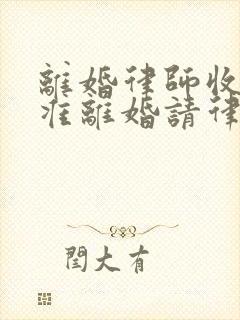 離婚律師收
准離婚請律
閏大有